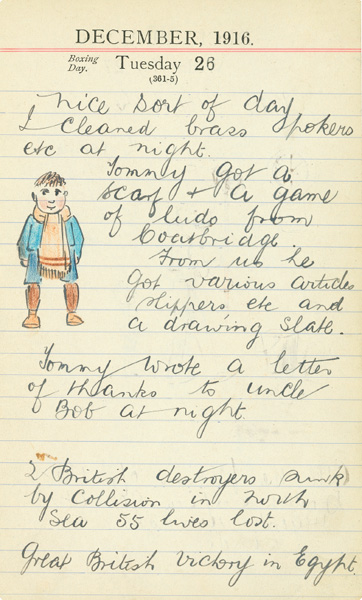 DECEMBER, 1916.
Boxing Day. Tuesday 26
(361-5)
Nice sort of day
I cleaned brass pokers
etc at night.
Tommy got a
scarf + a game
of ludo from
Coatbridge.
From us he
got various articles
slippers etc and
a drawing slate.
Tommy wrote a letter
of thanks to uncle
Bob at night.
2 British destroyers sunk
by collision in North
Sea 55 lives lost.
Great British victory in Egypt.